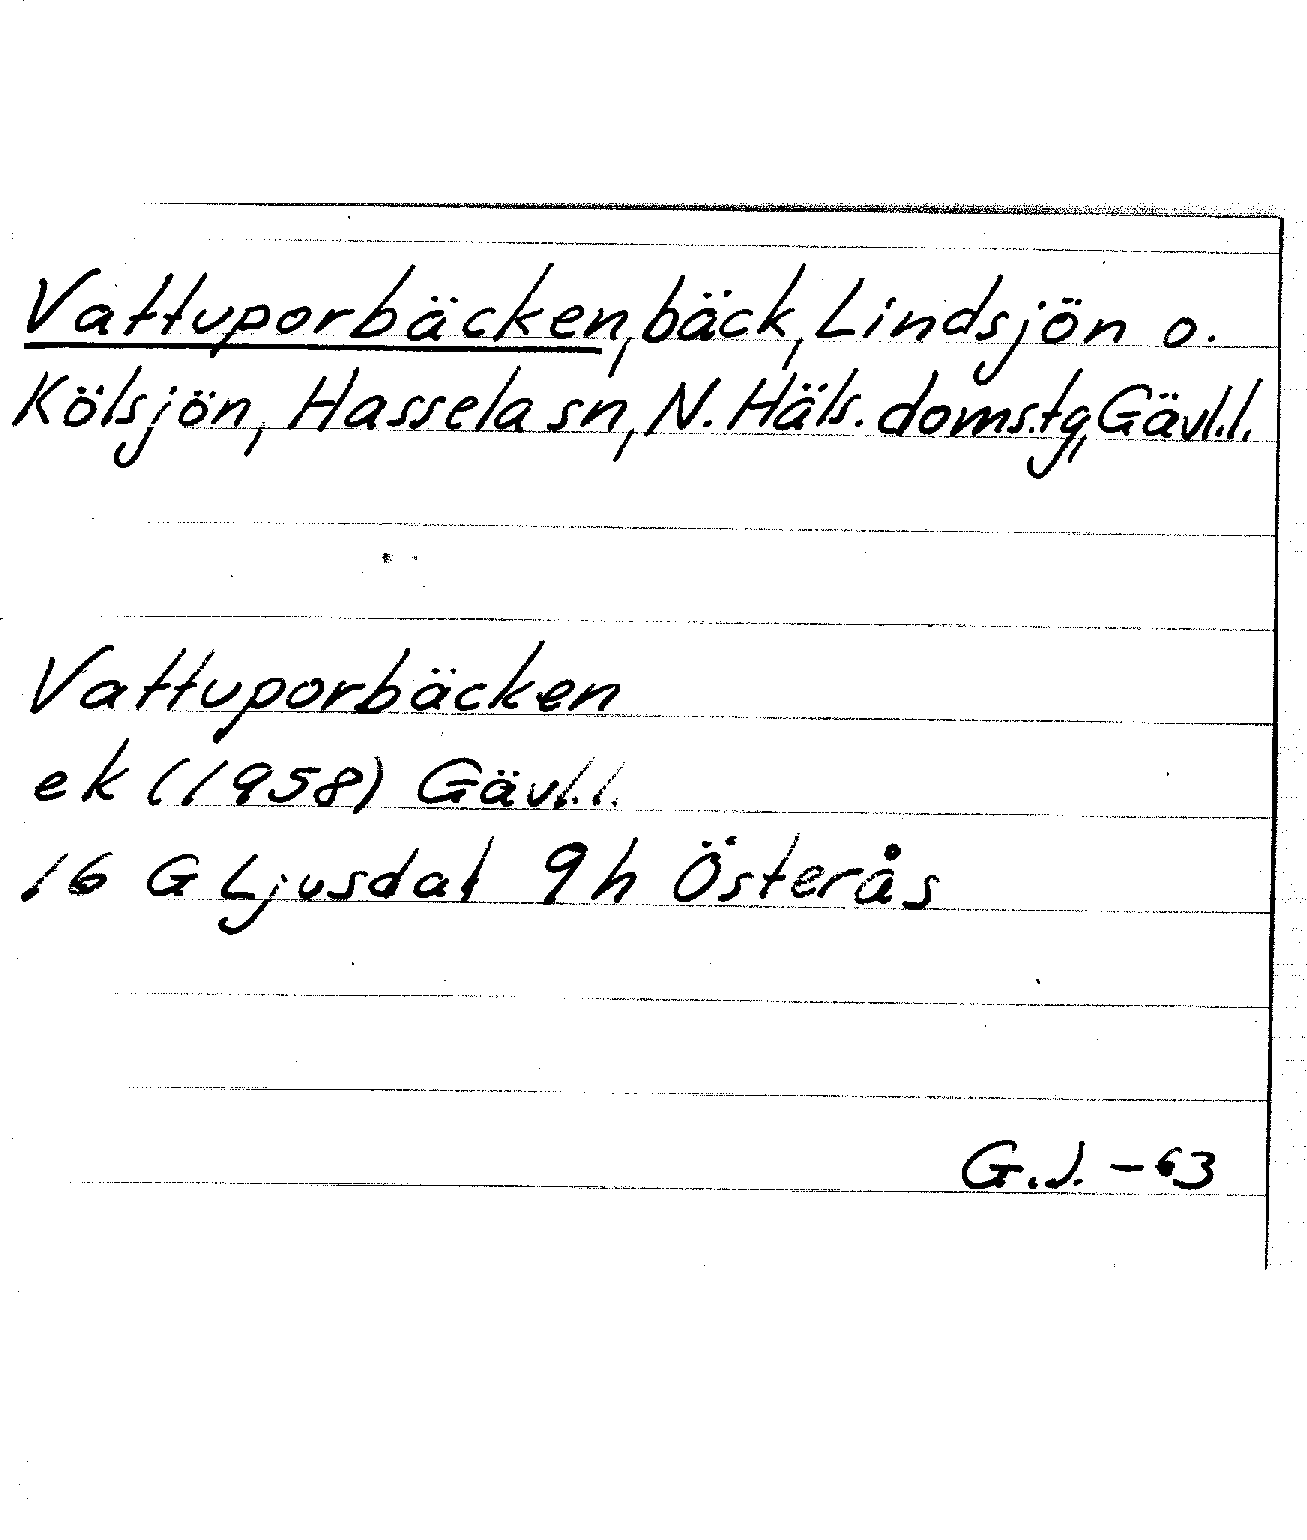 Vattuporbäcken, bäck, Lindsjön o.
Kölsjön, Hassela sn, N. Häls. doms.tg, Gävl.l.
Vattuporbäcken
ek (1958) Gävl.l.
16 G Ljusdal 9h Österås
G.J. -63